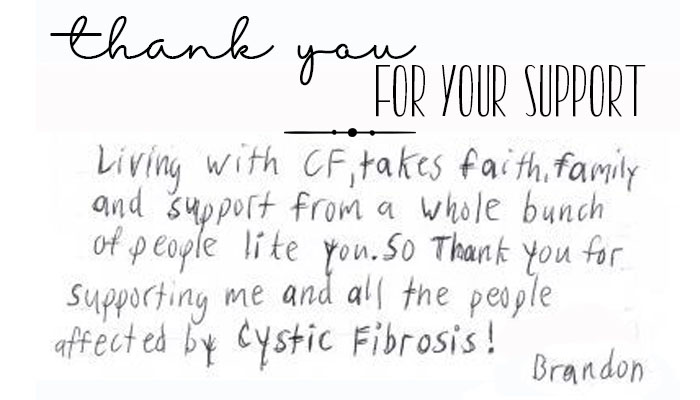 thank you
FOR YOUR SUPPORT
Living with CF, takes faith, family
and support from a whole bunch
of people like you. So Thank you for
supporting me and all the people
affected by Cystic Fibrosis!
Brandon